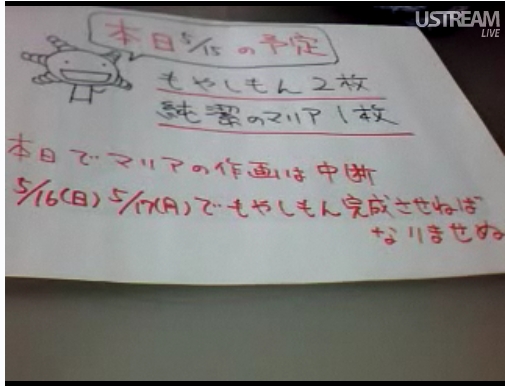 USTREAM
LIVE
本日5/15の予定
もやしもん2枚
純潔のマリア1枚
本日でマリアの作画は中断
5/16(日)5/17(月)でもやしもん完成させねば
なりませぬ